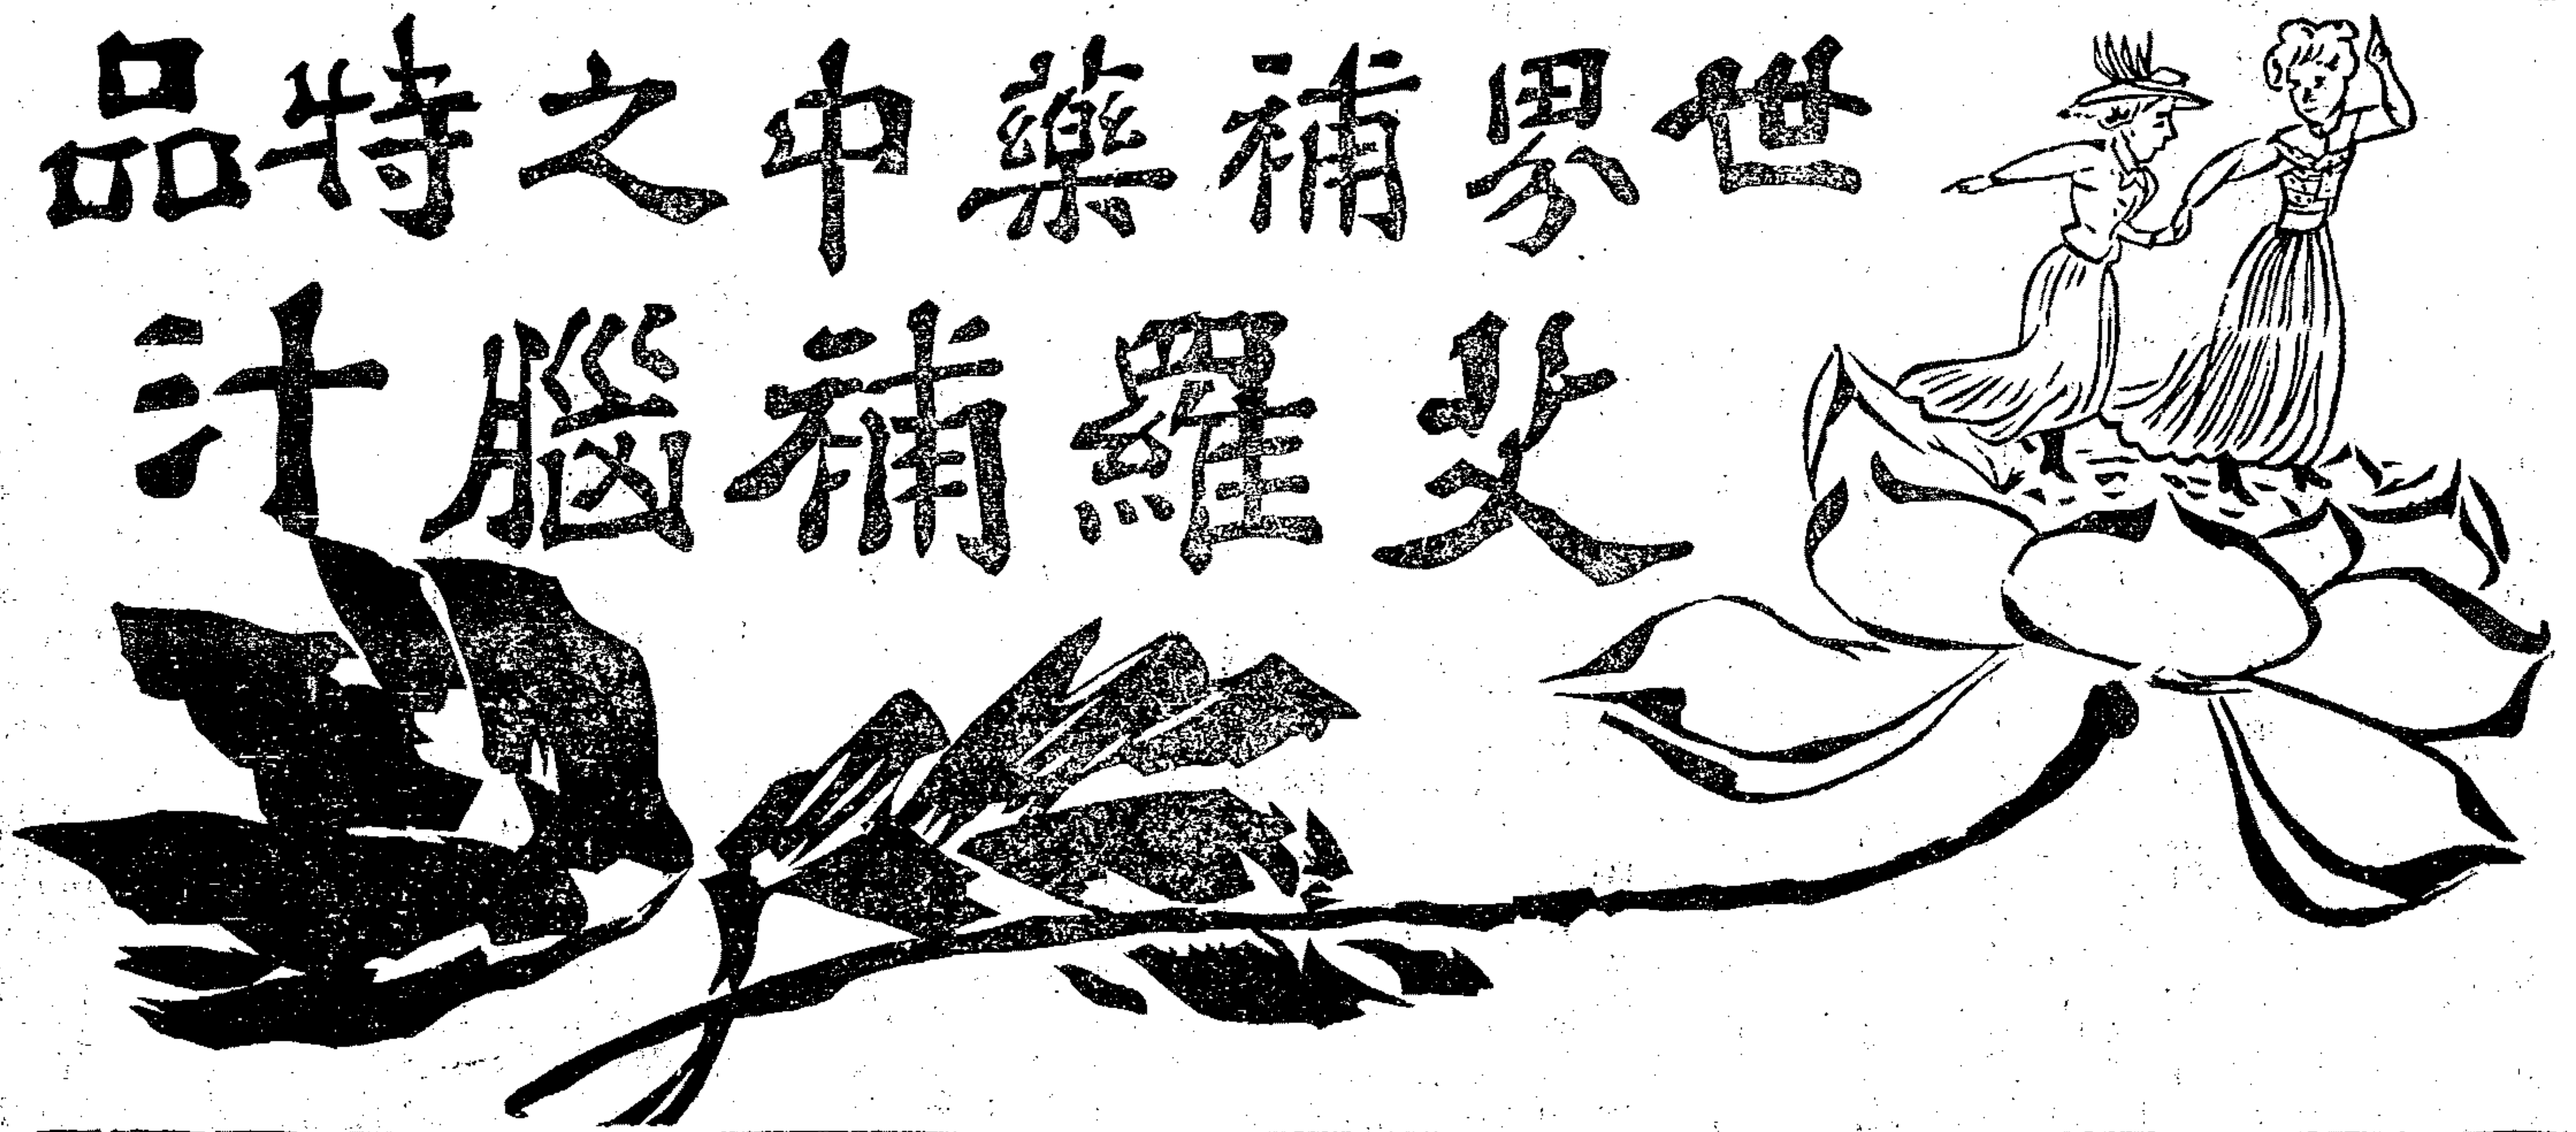 世界補藥中之特品
艾羅補腦汁